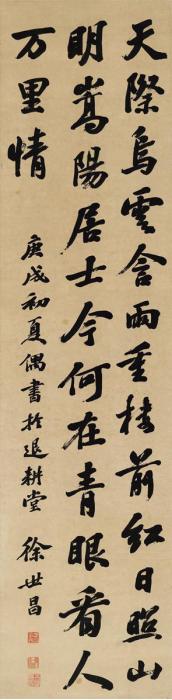 天際烏雲含雨重樓前紅日照山
明嵩陽居士今何在青眼看人
万里情
庚戌初夏偶書於退耕堂 徐世昌